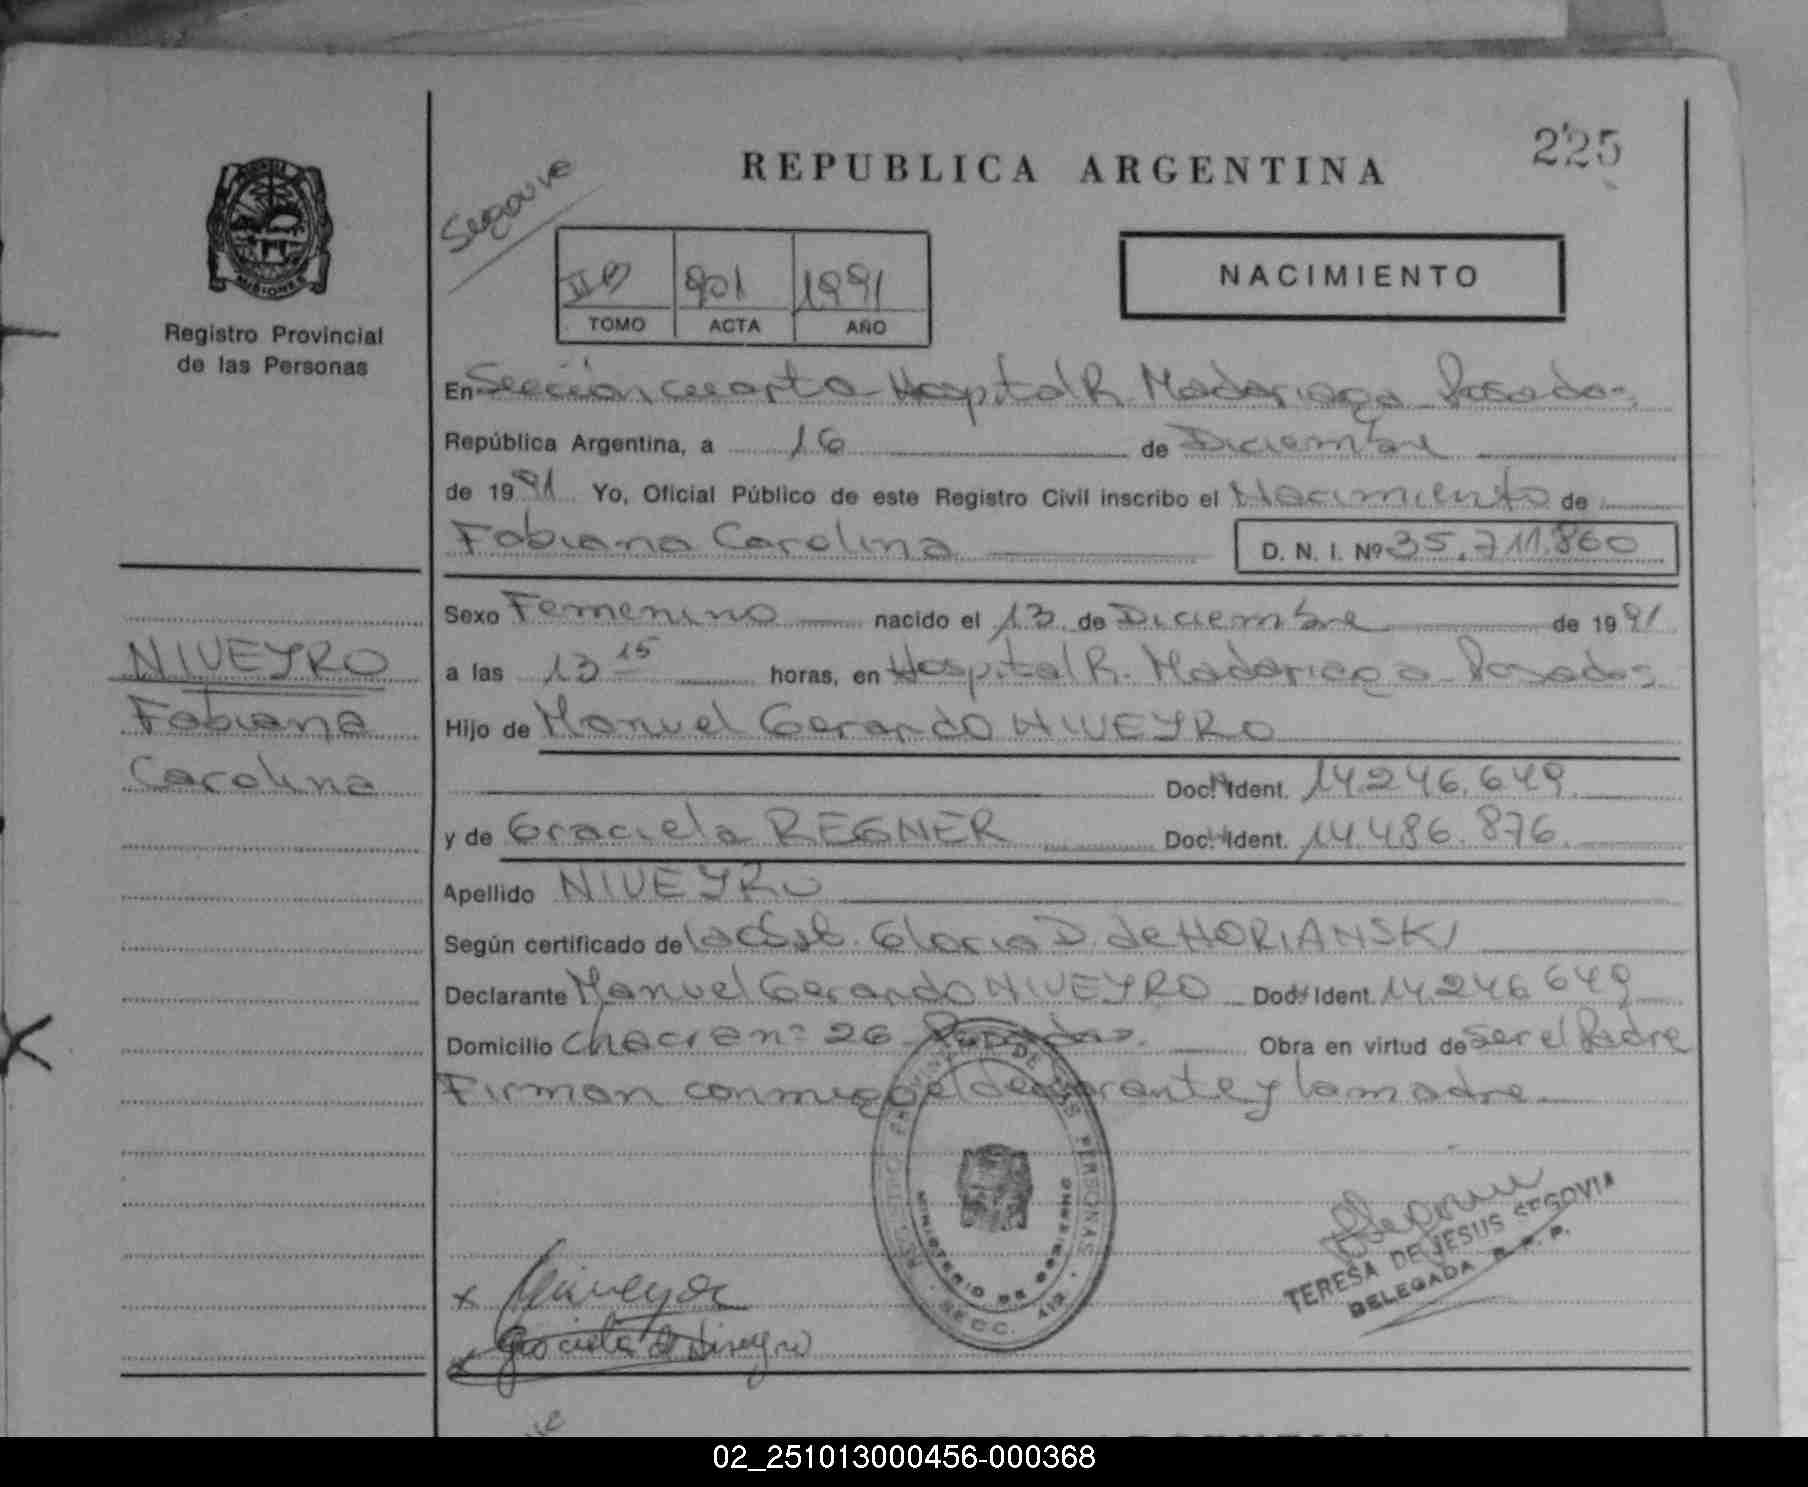 225
REPUBLICA ARGENTINA
MISIONES
Registro Provincial
de las Personas
NACIMIENTO
901 1991
TOMO ACTA AÑO
En Sección cuarta Hospital R. Madariaga Posadas
República Argentina, a 16 de Diciembre
de 1991 Yo, Oficial Público de este Registro Civil inscribo el Nacimiento de
Fabiana Carolina D. N. I. Nº 35.711.860
Sexo Femenino nacido el 13 de Diciembre de 1991
NIVEYRO
a las 13 15 horas, en Hospital R. Madariaga Posadas
Fabiana
Hijo de Manuel Gerardo NIVEYRO
Carolina
Doc. Ident. 14.246.649
y de Graciela REGNER Doc. Ident. 14.486.876
Apellido NIVEYRO
Según certificado de la Obst. Gloria D. de HORIANSKI
Declarante Manuel Gerardo NIVEYRO Doc. Ident. 14.246.649
Domicilio Chacra nº 26 Posadas. Obra en virtud de ser el Padre
Firman conmigo el declarante y la madre
REGISTRO PROVINCIAL DE LAS PERSONAS
MINISTERIO DE GOBIERNO
SECC. 4ta.
TERESA DE JESUS SEGOVIA
DELEGADA R. P. P.
x Niveyro
x Graciela de Niveyro
02_251013000456-000368